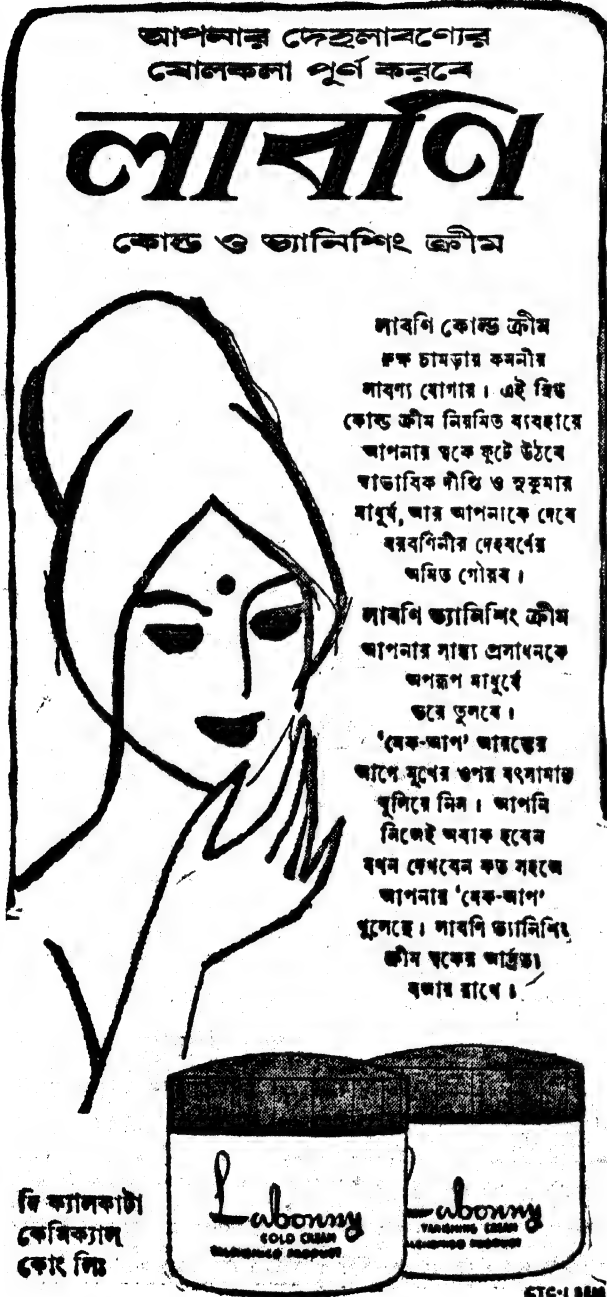 আপনার দেহলাবণ্যের
ষোলকলা পূর্ণ করবে
লাবণি
কোল্ড ও ভ্যানিশিং ক্রীম
লাবণি কোল্ড ক্রীম
রুক্ষ চামড়ার কমনীয়
লাবণ্য যোগায়। এই স্নিগ্ধ
কোল্ড ক্রীম নিয়মিত ব্যবহারে
আপনার ত্বকে ফুটে উঠবে
স্বাভাবিক দীপ্তি ও সুকুমার
মাধুর্য, আর আপনাকে দেবে
বরবর্ণিনীর দেহবর্ণের
অমিত গৌরব।
লাবণি ভ্যানিশিং ক্রীম
আপনার সান্ধ্য প্রসাধনকে
অপরূপ মাধুর্যে
ভরে তুলবে।
'মেক-আপ' আরম্ভের
আগে মুখের ওপর যৎসামান্য
বুলিয়ে নিন। আপনি
নিজেই অবাক হবেন
যখন দেখবেন কত সহজে
আপনার 'মেক-আপ'
খুলেছে। লাবণি ভ্যানিশিং
ক্রীম ত্বকের আর্দ্রতা
বজায় রাখে।
Labonny
COLD CREAM
CALCHEMICO PRODUCT
Labonny
VANISHING CREAM
CALCHEMICO PRODUCT
দি ক্যালকাটা
কেমিক্যাল
কোং লিঃ